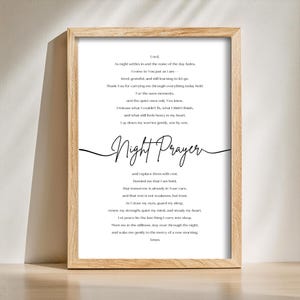 God,
As night settles in and the noise of the day fades,
I come to You just as I am –
tired, grateful, and still learning to let go.
Thank You for carrying me through everything today held.
For the seen moments,
and the quiet ones only You knew.
I release what I couldn't fix, what I didn't finish,
and what still feels heavy in my heart.
I lay down my worries gently, one by one,
Night Prayer
and replace them with rest.
Remind me that I am held,
that tomorrow is already in Your care,
and that rest is not weakness, but trust.
As I close my eyes, guard my sleep.
Let peace be the last thing I carry into sleep.
Then meet me in the stillness, stay near through the night,
and wake me gently to the mercy of a new morning.
Amen.